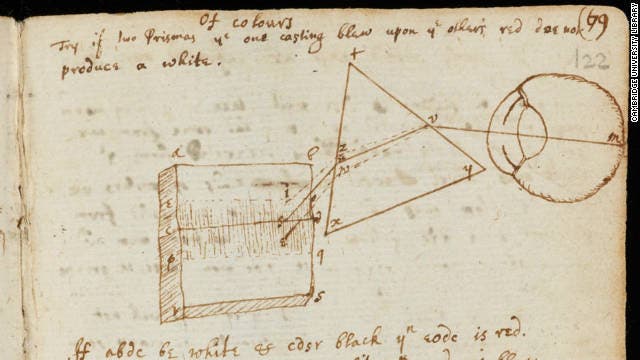 Of colours
(69
Try if two Prismas yᵉ one casting blew upon yᵉ other's red doe not
produce a white.
122
t
a
b
v
z
w
y
m
x
c
q
r
s
If abdc be white & cdsr black yⁿ eodc is red.
CAMBRIDGE UNIVERSITY LIBRARY